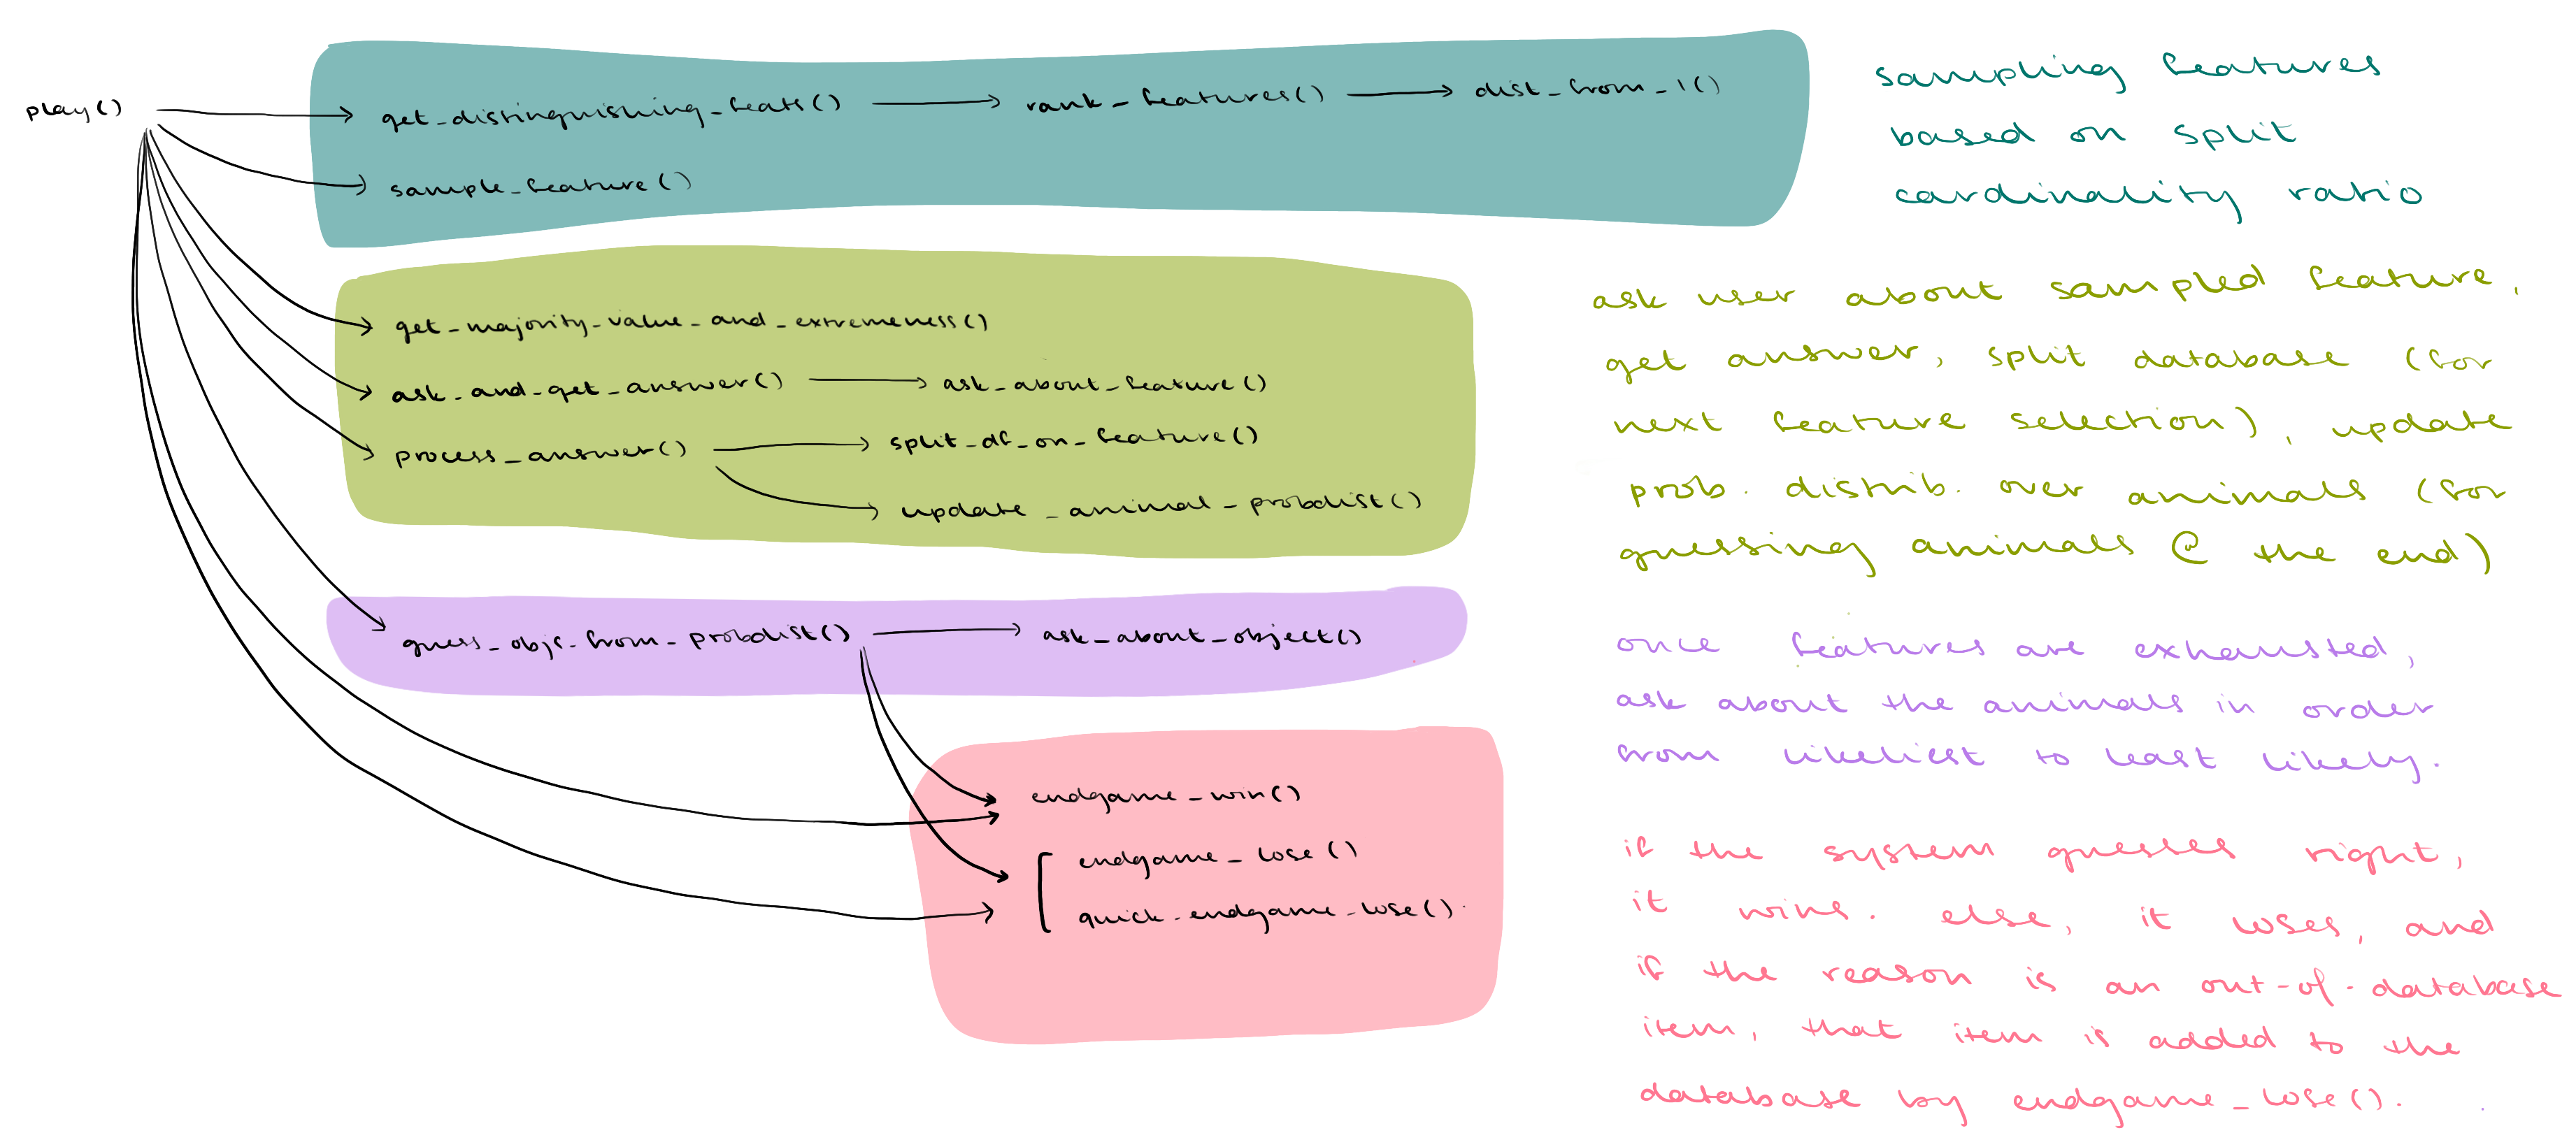 play()
get_distinguishing_feats()
rank_features()
dist_from_1()
sample_feature()
sampling features
based on split
cardinality ratio
get_majority_value_and_extremeness()
ask_and_get_answer()
ask_about_feature()
process_answer()
split_df_on_feature()
update_animal_probdist()
ask user about sampled feature,
get answer, split database (for
next feature selection), update
prob. distrib. over animals (for
guessing animals @ the end)
guess_obj_from_probdist()
ask_about_object()
once features are exhausted,
ask about the animals in order
from likeliest to least likely.
endgame_win()
endgame_lose()
quick_endgame_lose()
if the system guesses right,
it wins. else, it loses, and
if the reason is an out-of-database
item, that item is added to the
database by endgame_lose().